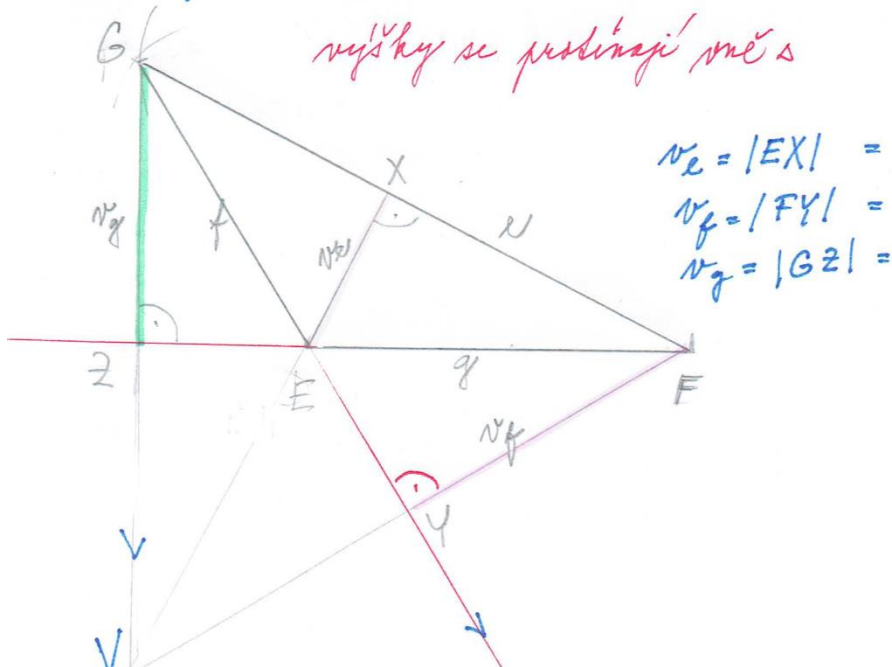 G
výšky se protínají vně △
X
vₑ = |EX| =
v_f = |FY| =
v_g = |GZ| =
v_g
f
vₑ
e
Z
E
g
F
v_f
Y
V